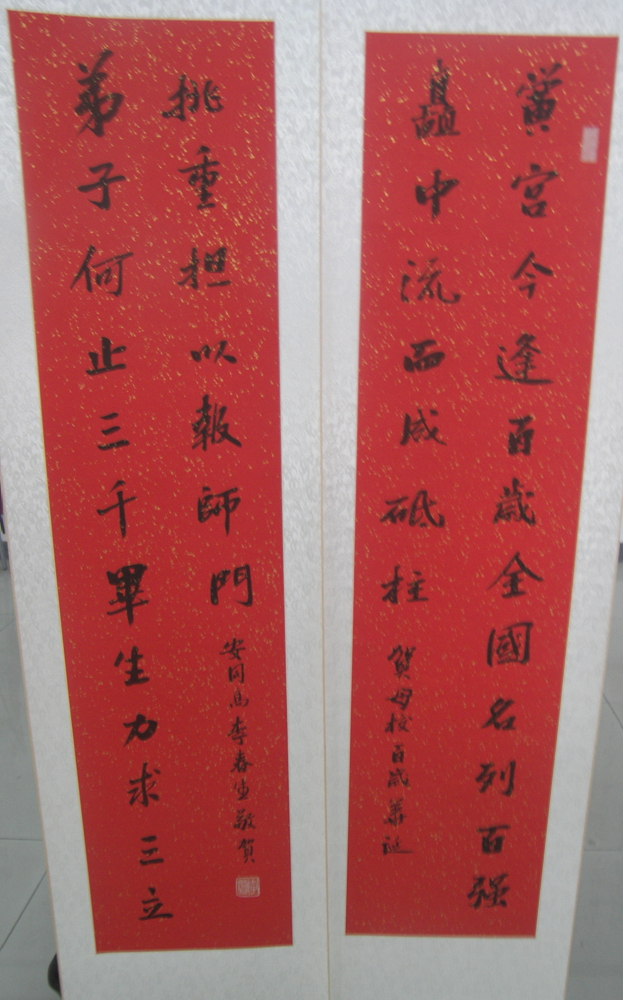 黉宫今逢百歲全國名列百强
矗中流而成砥柱
賀母校百歲華誕
弟子何止三千畢生力求三立
挑重担以報師門
安同李春生敬賀